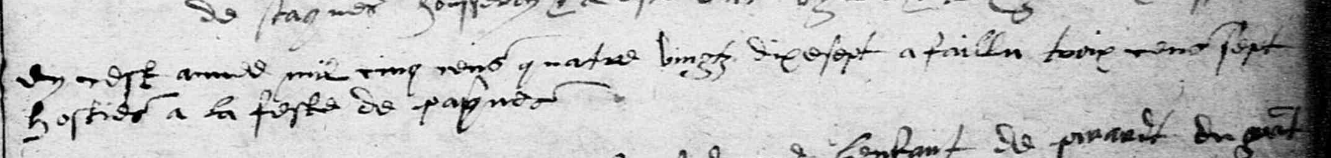 de
en cest annee mil cinq cens quatre vingtz dixesept a faillu troix cens sept
hosties a la feste de paques
lenfant de